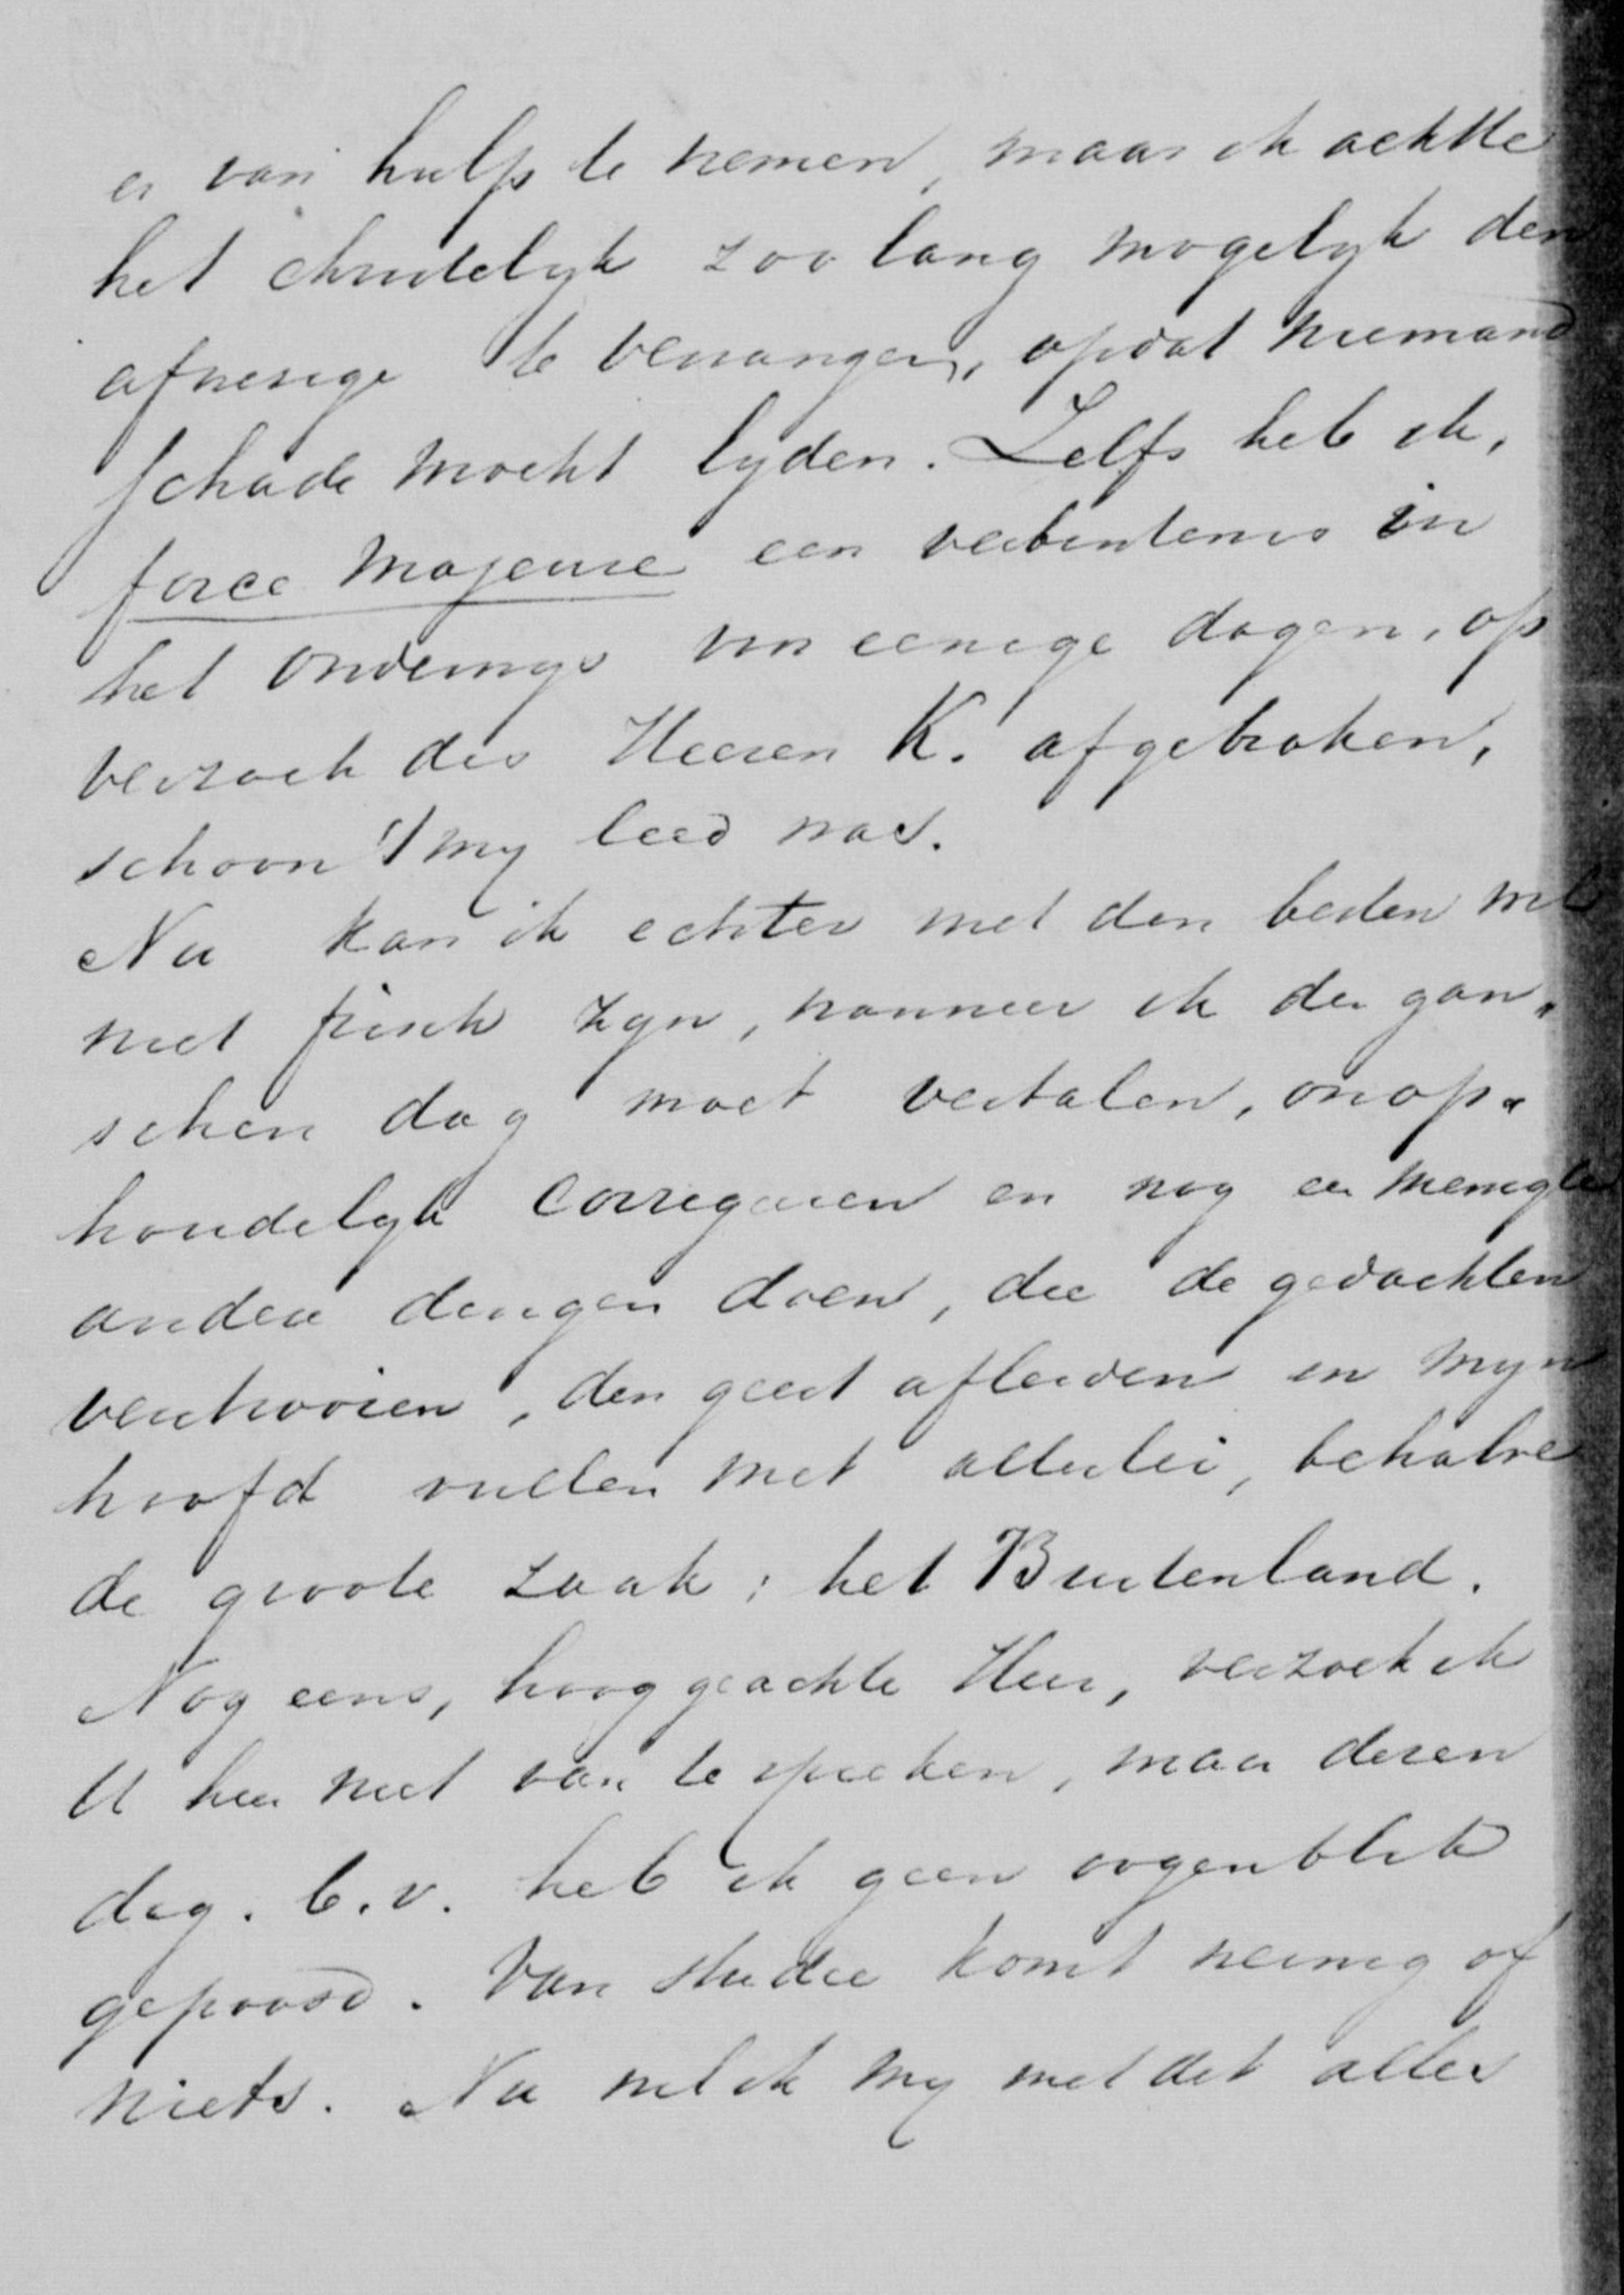 er van hulp te nemen, maar ik achtte
het christelyk zoo lang mogelyk den
afwezige te vervangen, opdat niemand
schade mocht lyden. Zelfs heb ik,
force majeure een verbintenis in
het onderwys voor eenige dagen, op
verzoek des Heeren K. afgebroken,
schoon 't my leed was.
Nu kan ik echter met den besten wil
niet frisch zyn, wanneer ik den gan„
schen dag moet vertalen, onop„
houdelyk corrigeeren en nog een menigte
andere dingen doen, die de gedachten
verstrooien, den geest afleiden en myn
hoofd vullen met allerlei, behalve
de groote zaak: het Buitenland.
Nog eens, hooggeachte Heer, verzoek ik
U hier niet van te spreken, maar dezen
dag. b.v. heb ik geen oogenblik
gepoosd. Van studie komt weinig of
niets. Nu wil ik my met dit alles